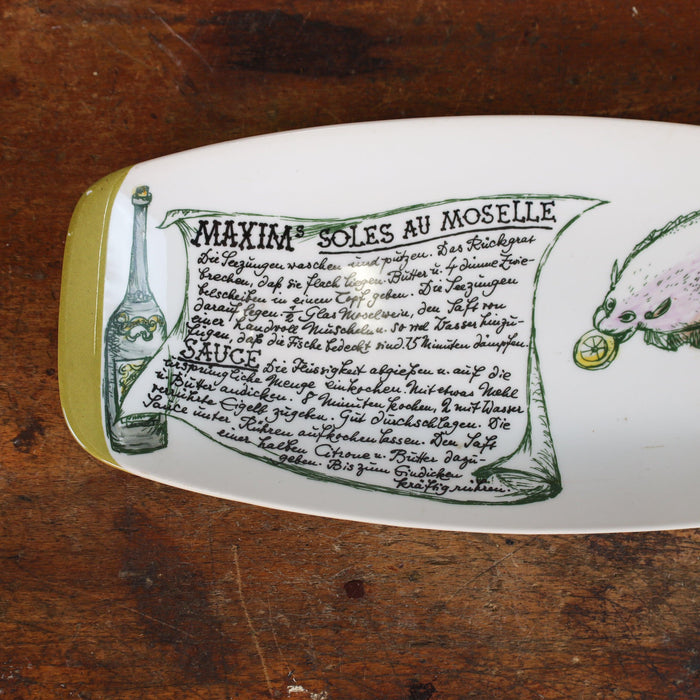 MAXIMs SOLES AU MOSELLE
Die Seezungen waschen und putzen. Das Rückgrat
brechen, daß sie flach liegen. Butter u. 4 dünne Zwie-
belscheiben in einen Topf geben. Die Seezungen
darauf legen. 2 Glas Moselwein, den Saft von
einer Handvoll Muscheln u. so viel Wasser hinzu-
fügen, daß die Fische bedeckt sind. 15 Minuten dämpfen.
SAUCE Die Flüssigkeit abgießen u. auf die
ursprüngliche Menge einkochen. Mit etwas Mehl
u. Butter andicken. 8 Minuten kochen, 2 mit Wasser
verrührte Eigelb zugeben. Gut durchschlagen. Die
Sauce unter Rühren aufkochen lassen. Den Saft
einer halben Citrone u. Butter dazu-
geben. Bis zum Eindicken
kräftig rühren.